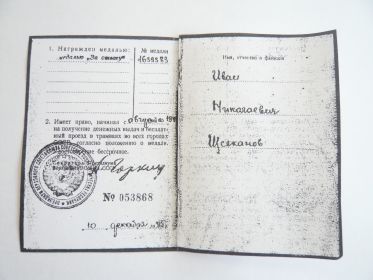 1. Награжден медалью:
№ медали
медалью „За отвагу"
1659583
2. Имеет право, начиная с августа 194
на получение денежных выдач и бесплат-
ный проезд в трамваях во всех городах
согласно положению о медали.
бессрочное.
Горкин
№ 053868
10 декабря 45
Имя, отчество и фамилия
Иван
Николаевич